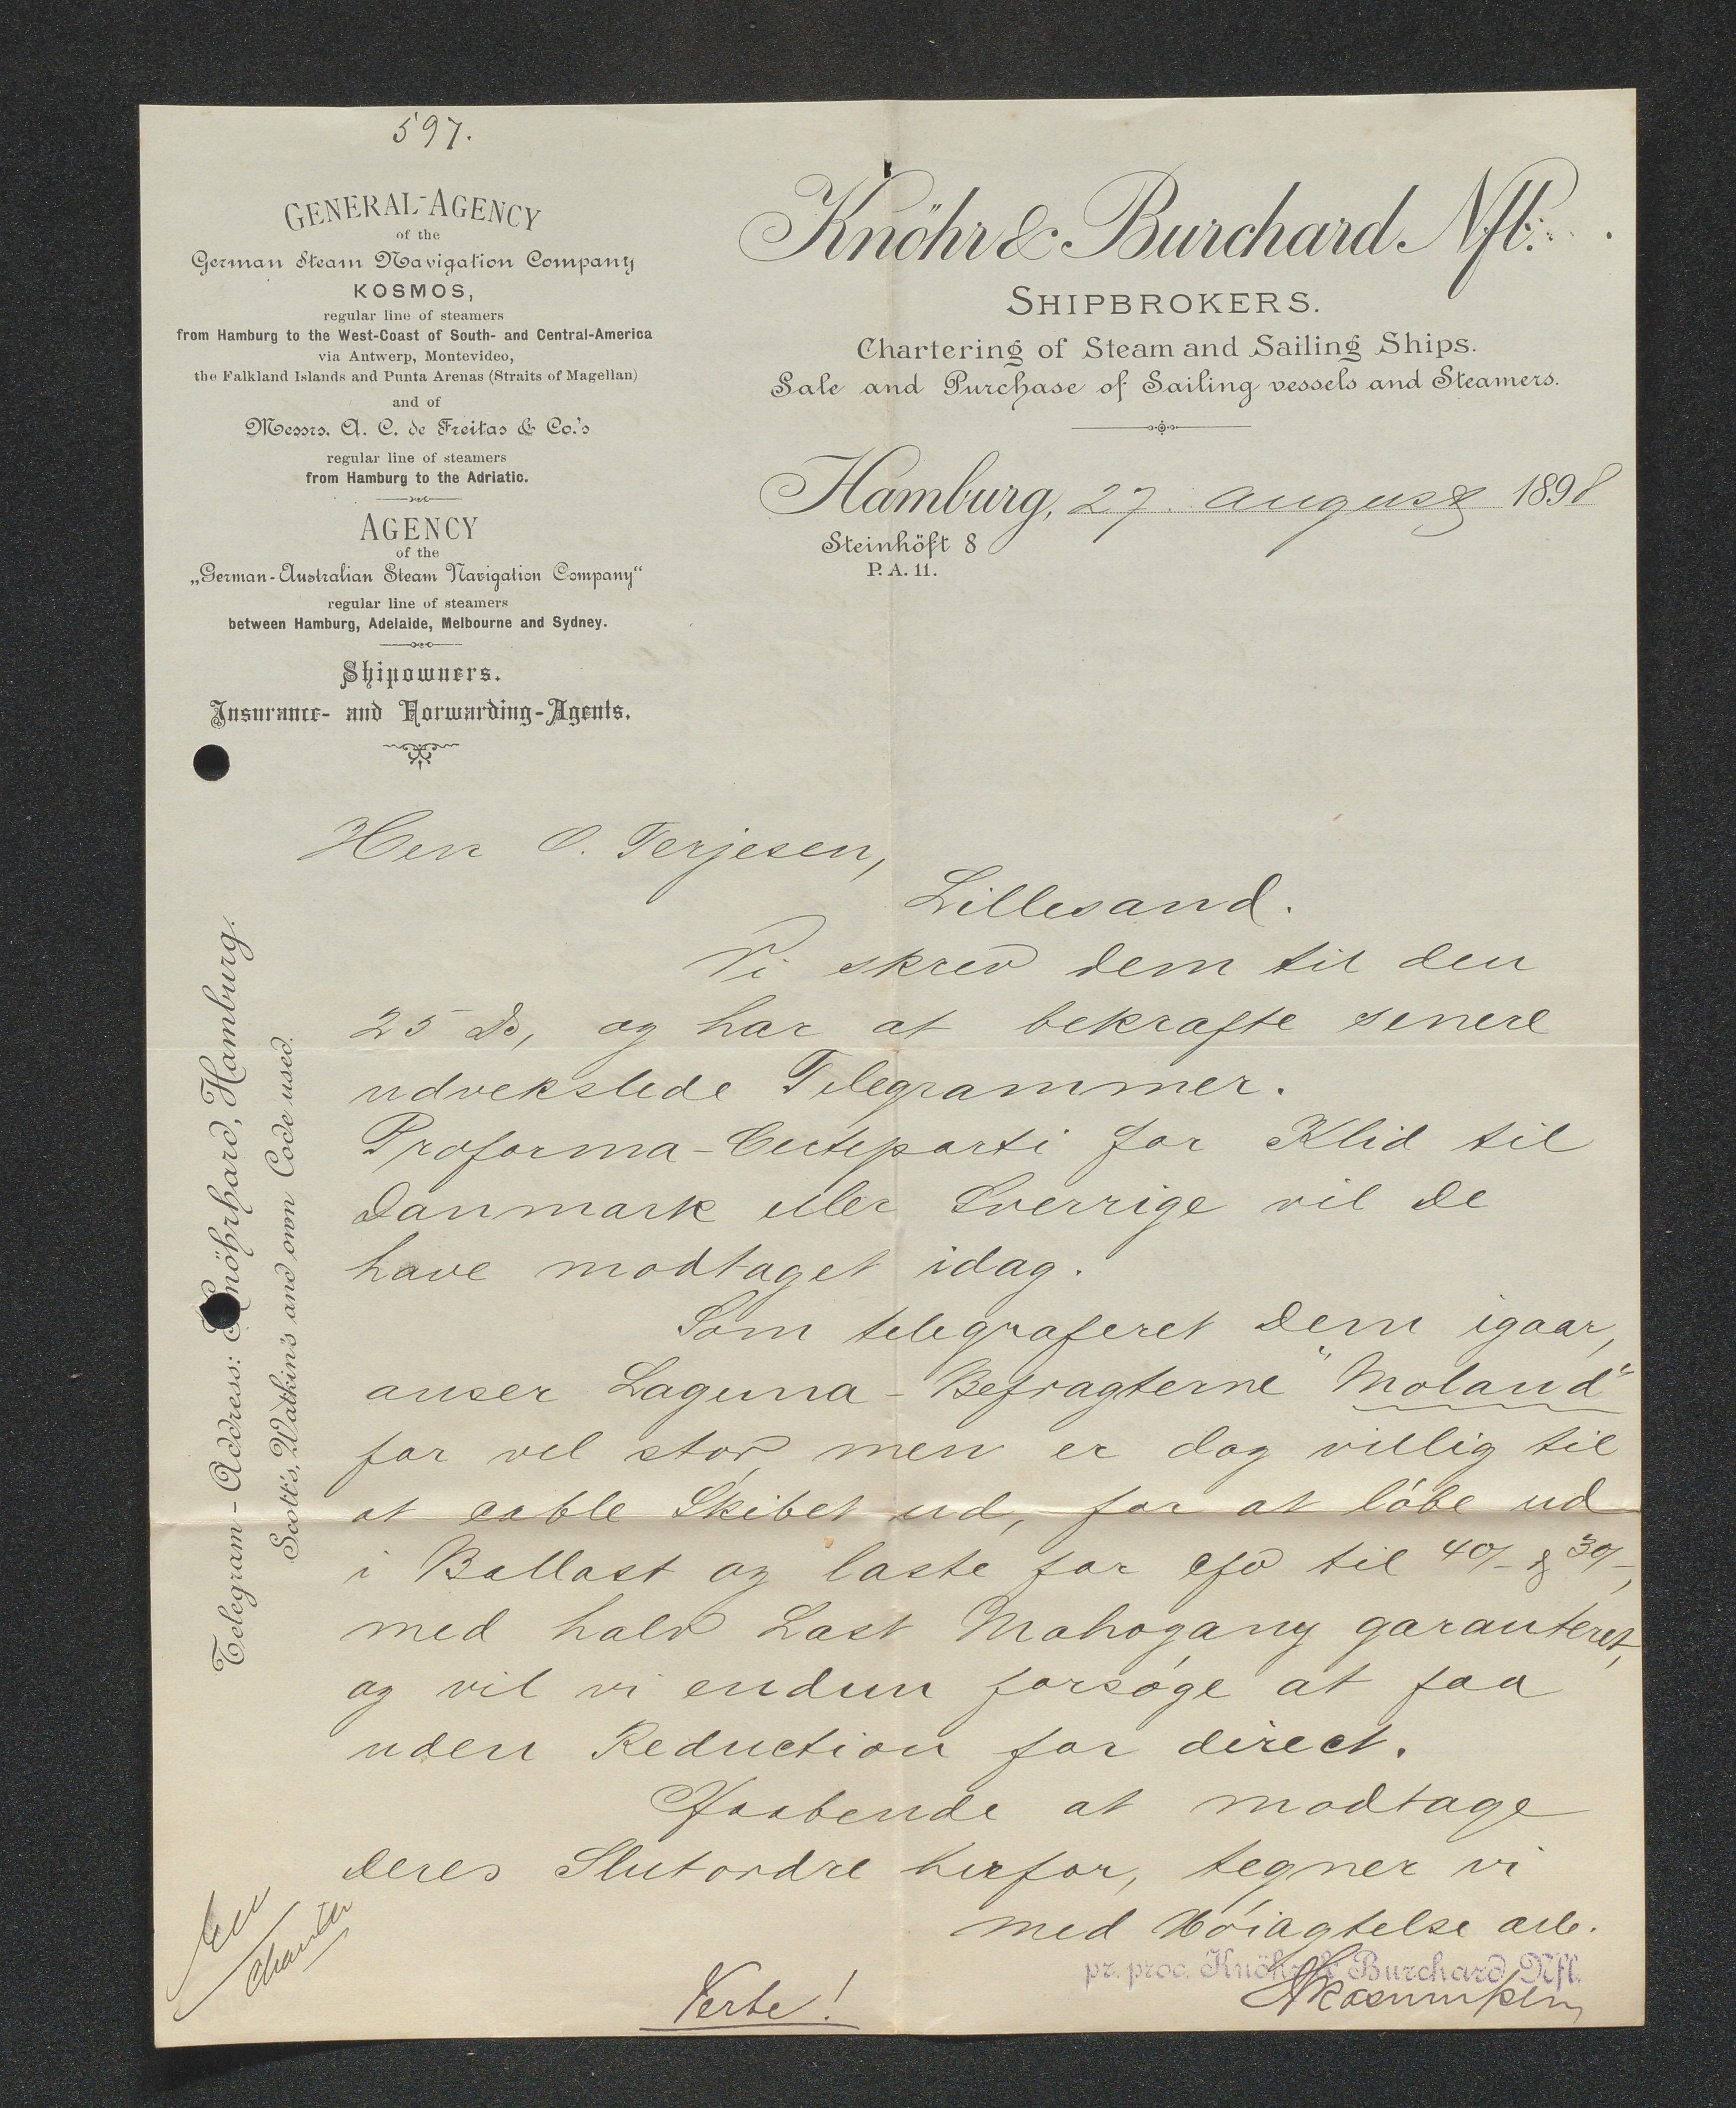 597.
GENERAL-AGENCY
of the
German Steam Navigation Company
KOSMOS,
regular line of steamers
from Hamburg to the West-Coast of South- and Central-America
via Antwerp, Montevideo,
the Falkland Islands and Punta Arenas (Straits of Magellan)
and of
Messrs. A. C. de Freitas & Co.'s
regular line of steamers
from Hamburg to the Adriatic.
AGENCY
of the
„German-Australian Steam Navigation Company“
regular line of steamers
between Hamburg, Adelaide, Melbourne and Sydney.
Shipowners.
Insurance- and Forwarding-Agents.
Knöhr & Burchard Nfl.
SHIPBROKERS.
Chartering of Steam and Sailing Ships.
Sale and Purchase of Sailing vessels and Steamers.
Hamburg, 27. August 1898
Steinhöft 8
P. A. 11.
Telegram-Address: Knöhrhard, Hamburg.
Scott's, Watkin's and own Code used.
Herr O. Terjesen,
Lillesand.
Vi skrev dem til den
25 ds, og har at bekrafte senere
udvekslede Telegrammer.
Proforma-Certeparti for Klid til
Danmark eller Sverrige vil De
have modtaget idag.
Som telegraferet Dem igaar,
anser Laguna-Befragterne "Moland"
for vel stor men er dog villig til
at cable Skibet ud, for at löbe ud
i Ballast og laste for cfo til 40/- & 30/-,
med halv Last Mahogany garanteret,
og vil vi endun forsöge at faa
uden Reduction for direct.
Haabende at modtage
deres Slutordre herfor, tegner vi
med Höiagtelse
pr. proc. Knöhr & Burchard Nfl.
Verte!